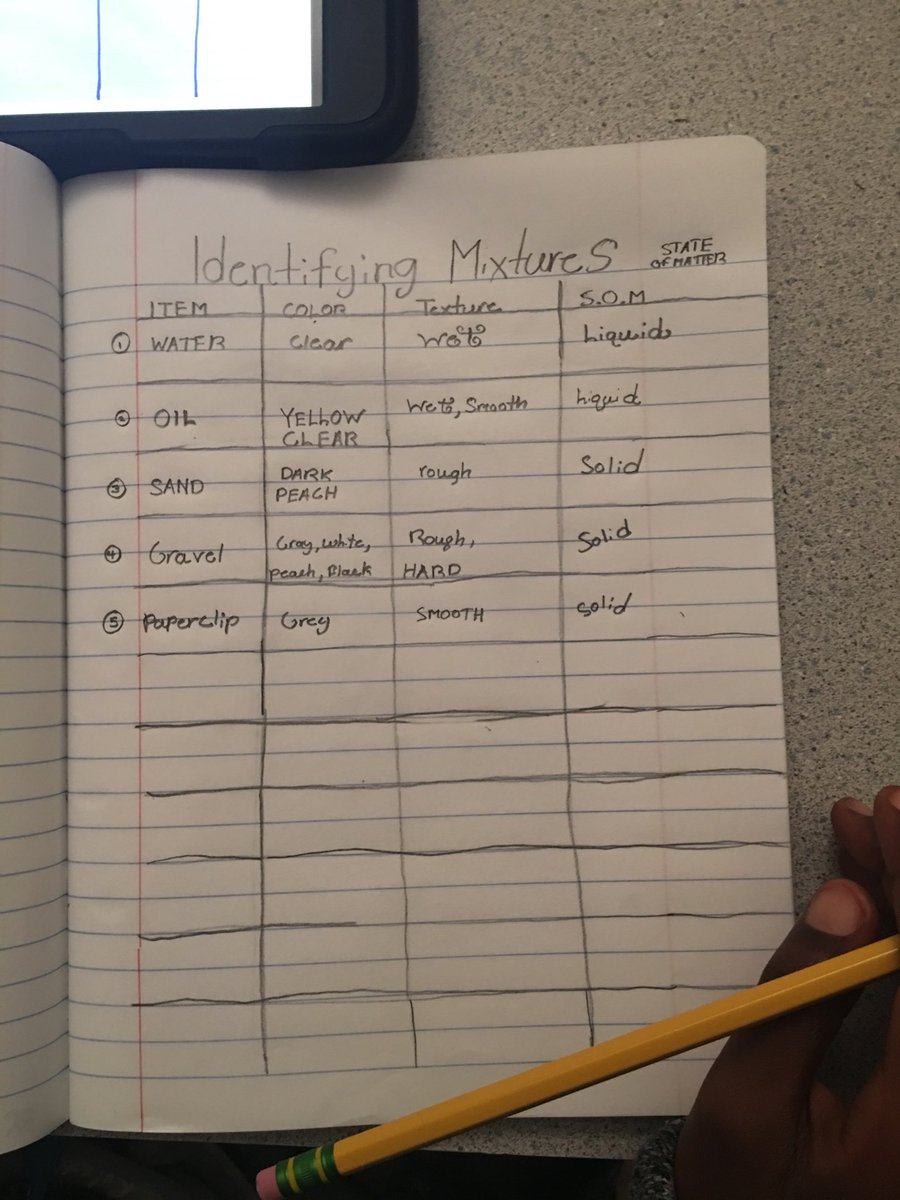 Identifying Mixtures STATE
OF MATTER
ITEM COLOR Texture S.O.M
① WATER Clear Wet Liquid
② OIL YELLOW CLEAR Wet, Smooth Liquid
③ SAND DARK PEACH rough Solid
④ Gravel Gray, White, Peach, Black Rough, HARD Solid
⑤ Paperclip Grey SMOOTH Solid